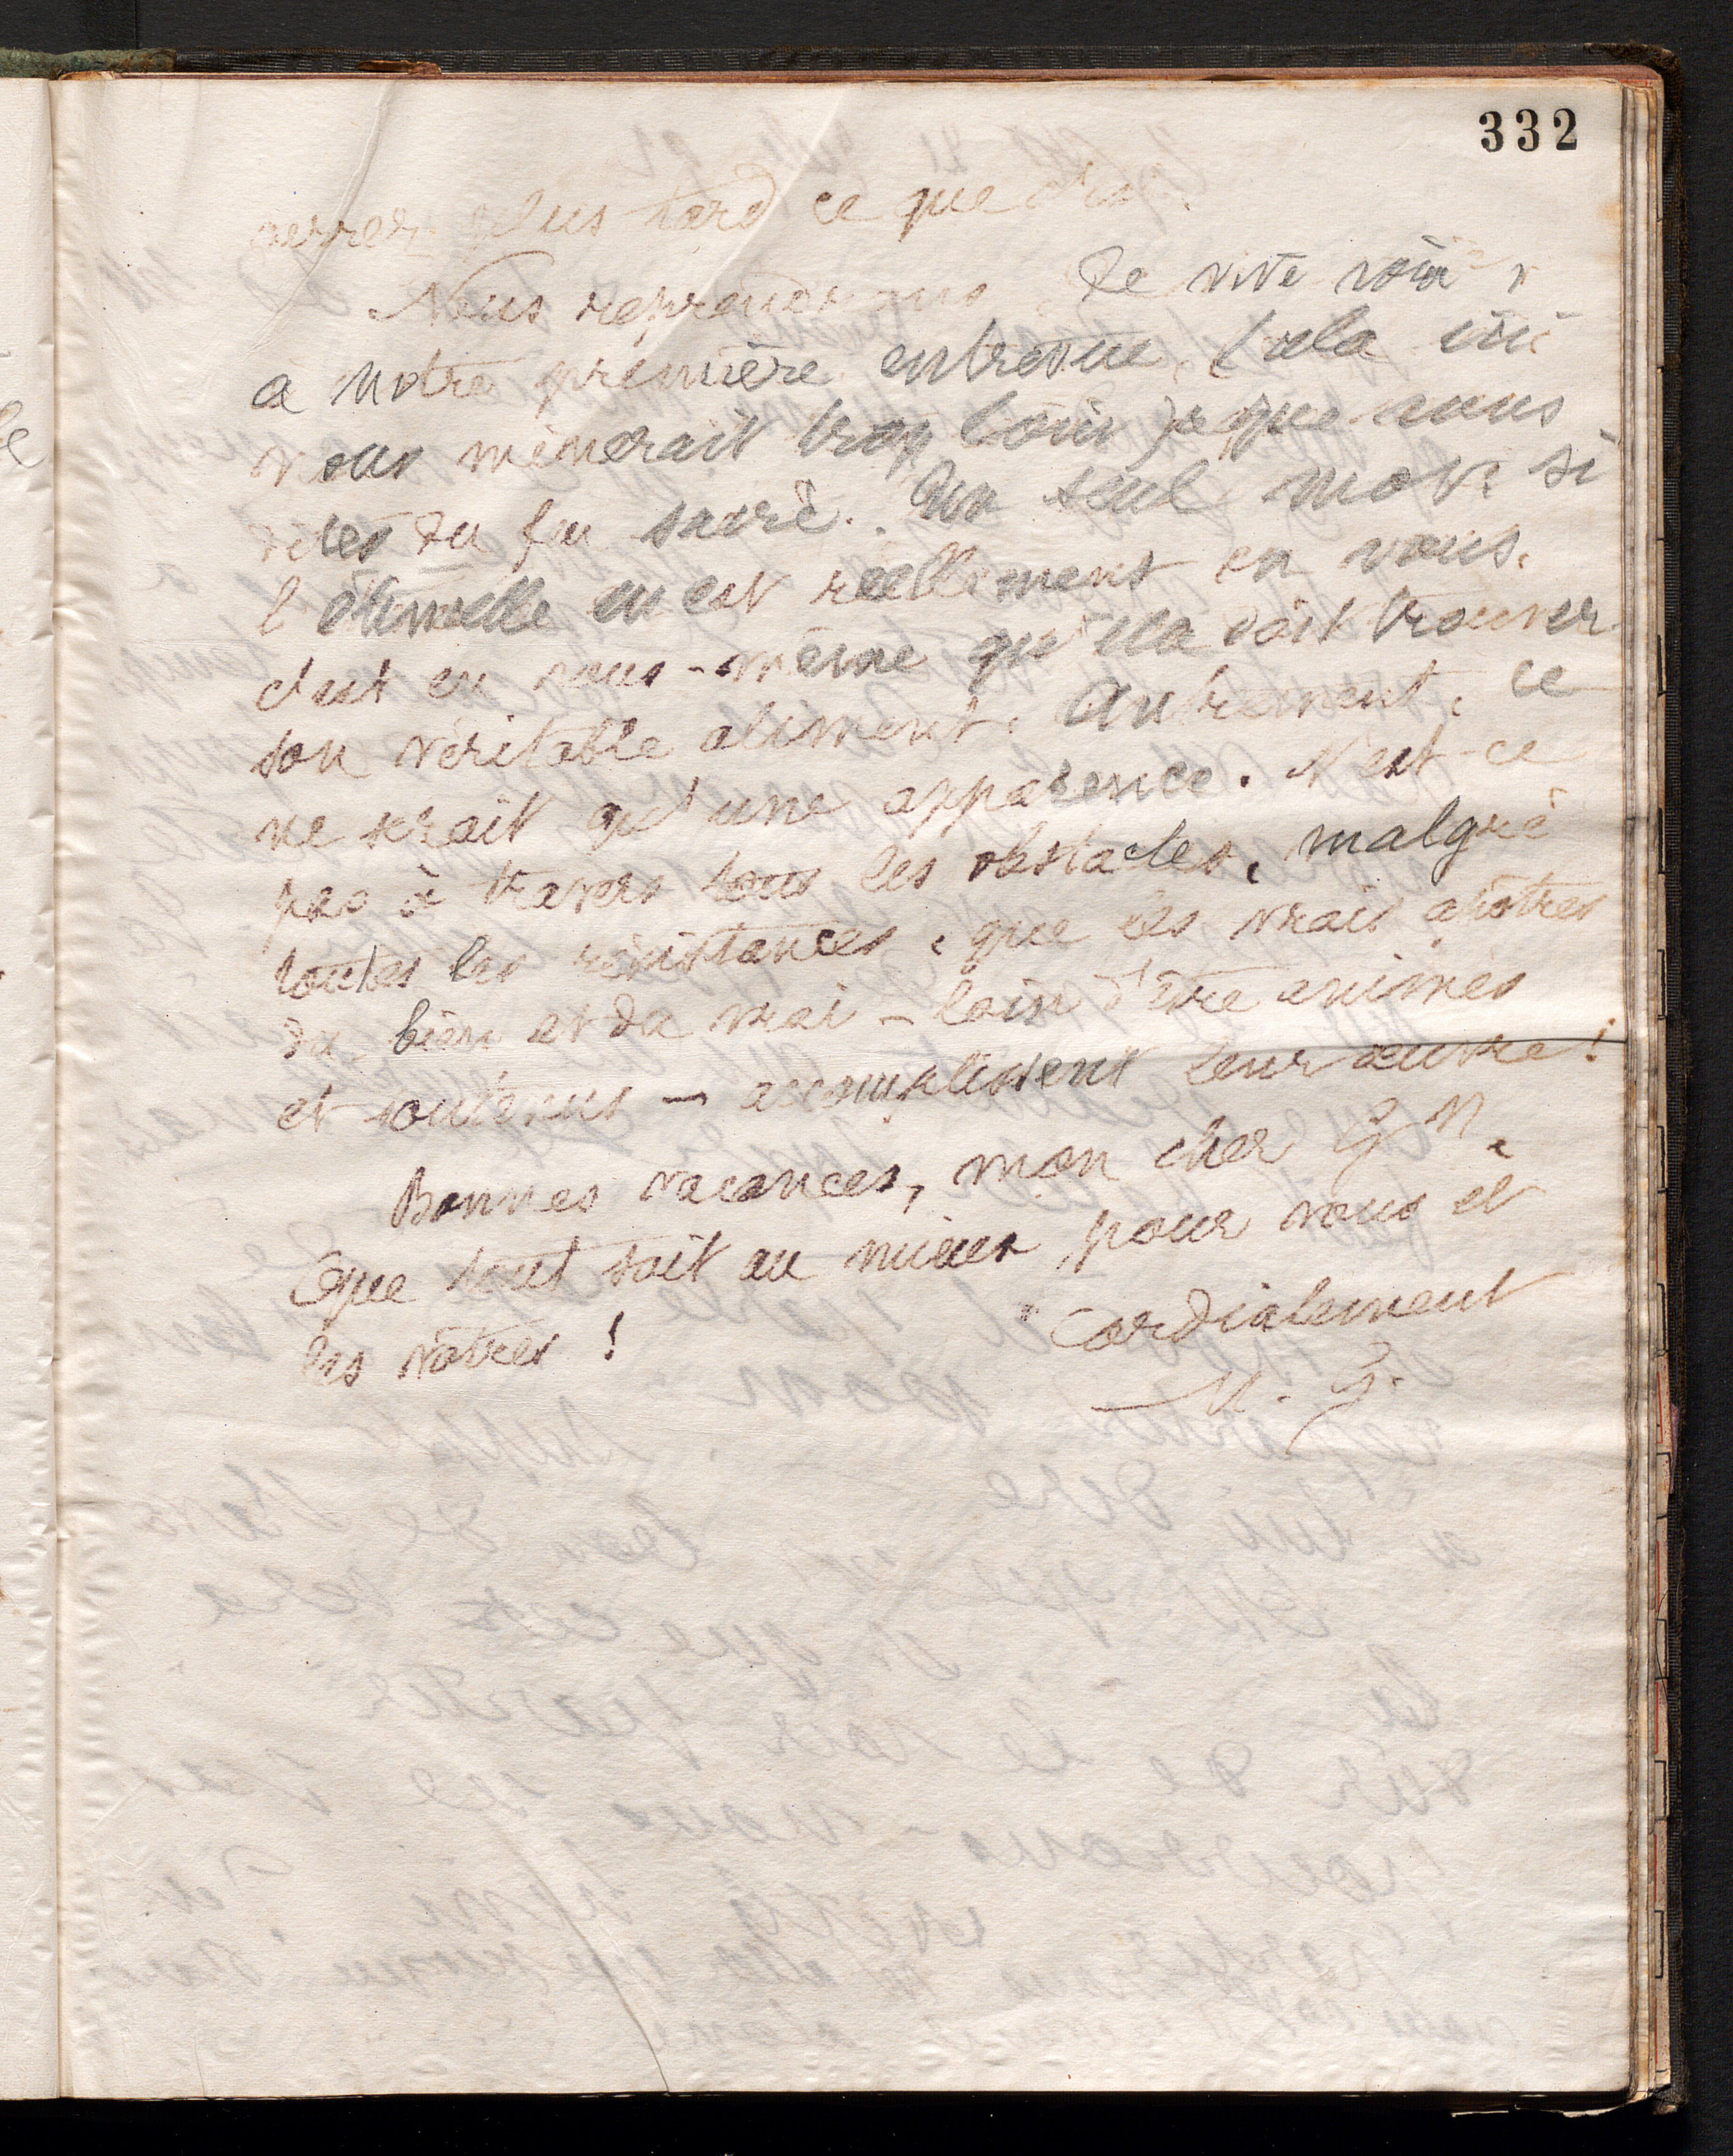 332
verrez plus tard ce que c'est.
Nous reprendrons de vive voix,
à notre première entrevue, (cela ici
nous mènerait trop loin) ce que vous
dites du feu sacré. Un seul mot : si
l'étincelle en est réellement en vous,
c'est en vous-même qu'elle doit trouver
son véritable aliment. Autrement, ce
ne serait qu'une apparence. N'est-ce
pas à travers tous les obstacles, malgré
toutes les résistances, que les vrais apôtres
du bien et du vrai - loin d'être animés
et soutenus - accomplissent leur œuvre !
Bonnes vacances, mon cher
Que tout soit au mieux pour vous et
les vôtres !
Cordialement